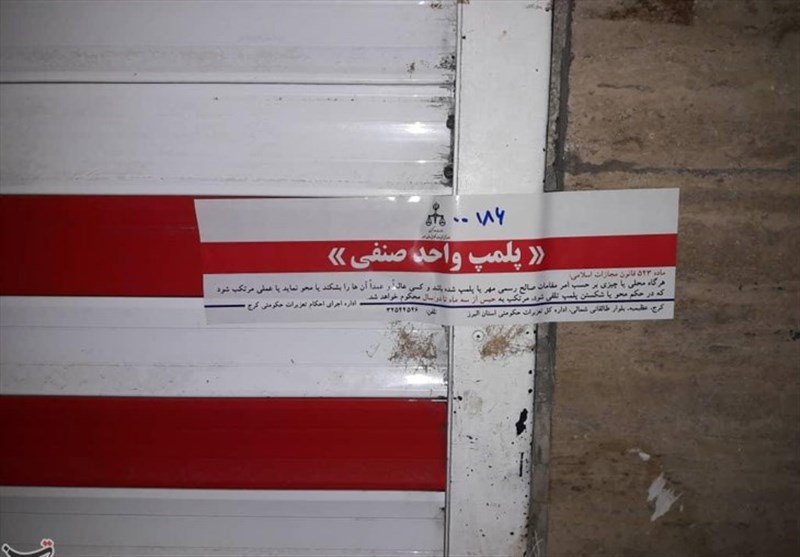 ۰۰۱۸۶
« پلمپ واحد صنفی »
ماده ۵۴۳ قانون مجازات اسلامی:
هرگاه محلی یا چیزی بر حسب امر مقامات صالح رسمی مهر یا پلمپ شده باشد و کسی عالماً و عمداً آن ها را بشکند یا محو نماید یا عملی مرتکب شود
که در حکم محو یا شکستن پلمپ تلقی شود، مرتکب به حبس از سه ماه تا دو سال محکوم خواهد شد.
اداره اجرای احکام تعزیرات حکومتی کرج
کرج، عظیمیه، بلوار طالقانی شمالی، اداره کل تعزیرات حکومتی استان البرز
تلفن: ۳۲۵۴۴۵۲۶